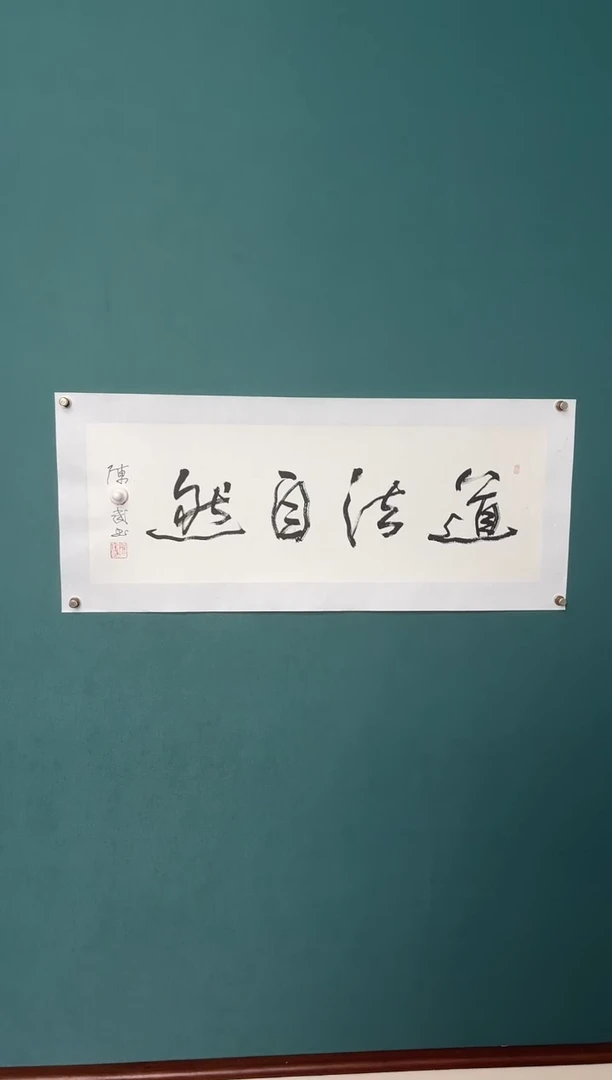 道法自然
陳